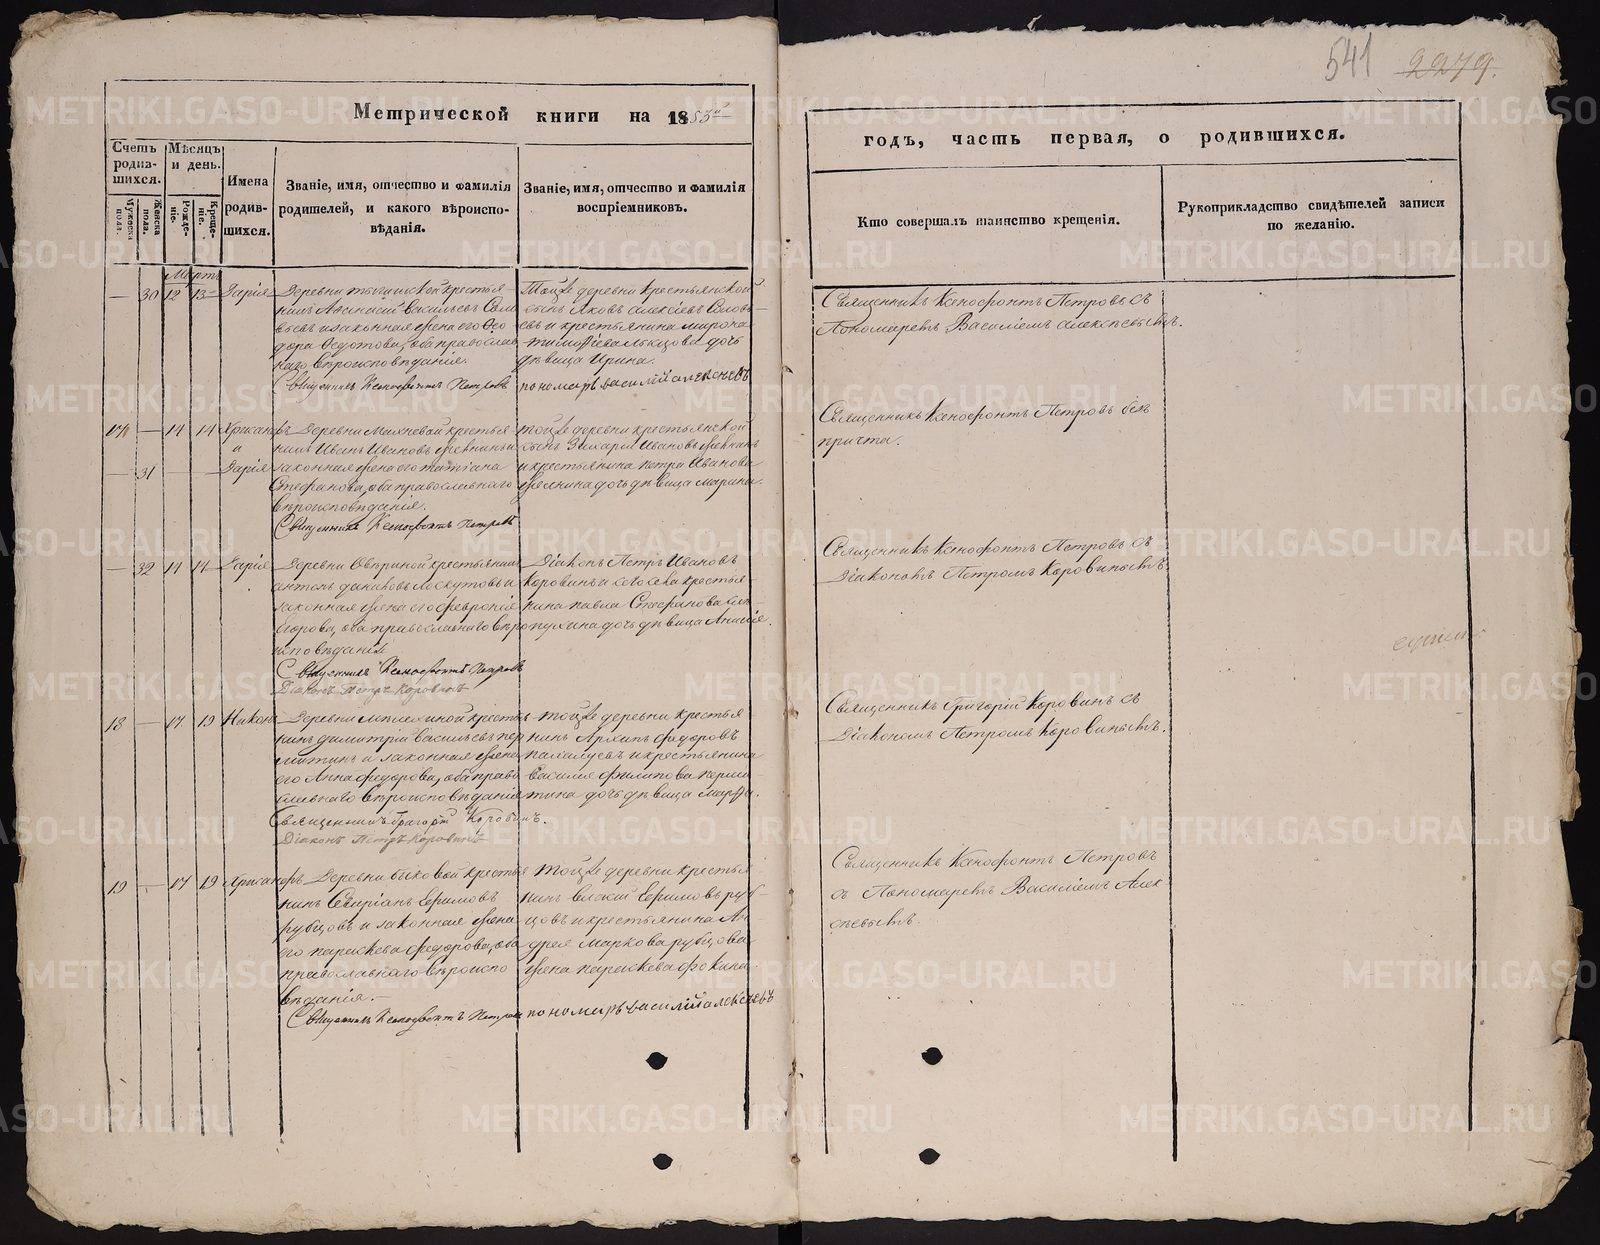 541 2279.
Метрической книги на 1885й
годъ, часть первая, о родившихся.
Счетъ родив-шихся.
Мѣсяцъ и день.
Имена родив-шихся.
Званіе, имя, отчество и фамилія родителей, и какого вѣроиспо-вѣданія.
Званіе, имя, отчество и фамилія воспріемниковъ.
Кто совершалъ таинство крещенія.
Рукоприкладство свидѣтелей записи по желанію.
Мужеска пола.
Женска пола.
Рожде-ніе.
Креще-ніе.
Мартъ
— 30 12 13 Дарія
Деревни крестья-
нинъ Аѳанасій Васильевъ Соло
вьевъ и законная жена его Ѳео
дора Ѳедотова, оба православ
наго вѣроисповѣданія.
Священникъ Ксенофонтъ Петровъ
Тойже деревни крестьянской
сынъ Яковъ Алексіевъ Соловь-
евъ и крестьянина Марона
дочь
дѣвица Ирина.
пономарь василій алексѣевъ
Священникъ Ксенофонтъ Петровъ съ
Пономаремъ Василіемъ Алексѣевымъ.
17 — 14 14 Хрисанфъ
и
— 31 — — Дарія
Деревни Махневой крестья
нинъ Иванъ Ивановъ и
законная жена его Татіана
Стефанова, оба православнаго
вѣроисповѣданія.
Священникъ Ксенофонтъ Петровъ
тойже деревни крестьянской
сынъ Ивановъ
и крестьянина Петра Иванова
дочь дѣвица Марина.
Священникъ Ксенофонтъ Петровъ безъ
причта.
— 32 14 14 Дарія
Деревни крестьянинъ
Антонъ и
законная жена его Февронія
Егорова, оба православнаго вѣро
исповѣданія
Священникъ Ксенофонтъ Петровъ
Діаконъ Петръ Коровинъ
Діаконъ Петръ Ивановъ
Коровинъ и крестья
нина Павла Стефанова
дочь дѣвица
Священникъ Ксенофонтъ Петровъ съ
Діакономъ Петромъ Коровинымъ.
18 — 17 19 Никонъ
Деревни крестья
нинъ Димитрій Васильевъ Пер
митинъ и законная жена
его Анна Федорова, оба право
славнаго вѣроисповѣданія
Священникъ Григорій Коровинъ.
Діаконъ Петръ Коровинъ
тойже деревни крестья
нинъ Архипъ Федоровъ
и крестьянина
Василія Филипова Перми
тина дочь дѣвица Марфа.
Священникъ Григорій Коровинъ съ
Діакономъ Петромъ Коровинымъ.
19 — 17 19 Хрисанфъ
Деревни Быковой крестья
нинъ Ефимовъ
Рубцовъ и законная жена
его Параскева Федорова, оба
православнаго вѣроиспо
вѣданія.—
Священникъ Ксенофонтъ Петровъ
тойже деревни крестья
нинъ Ефимовъ Руб-
цовъ и крестьянина Ан-
дрея Маркова Рубцова
жена Параскева Фокина.
пономарь василій алексѣевъ
Священникъ Ксенофонтъ Петровъ
съ Пономаремъ Василіемъ Алек-
сѣевымъ.
METRIKI.GASO-URAL.RU